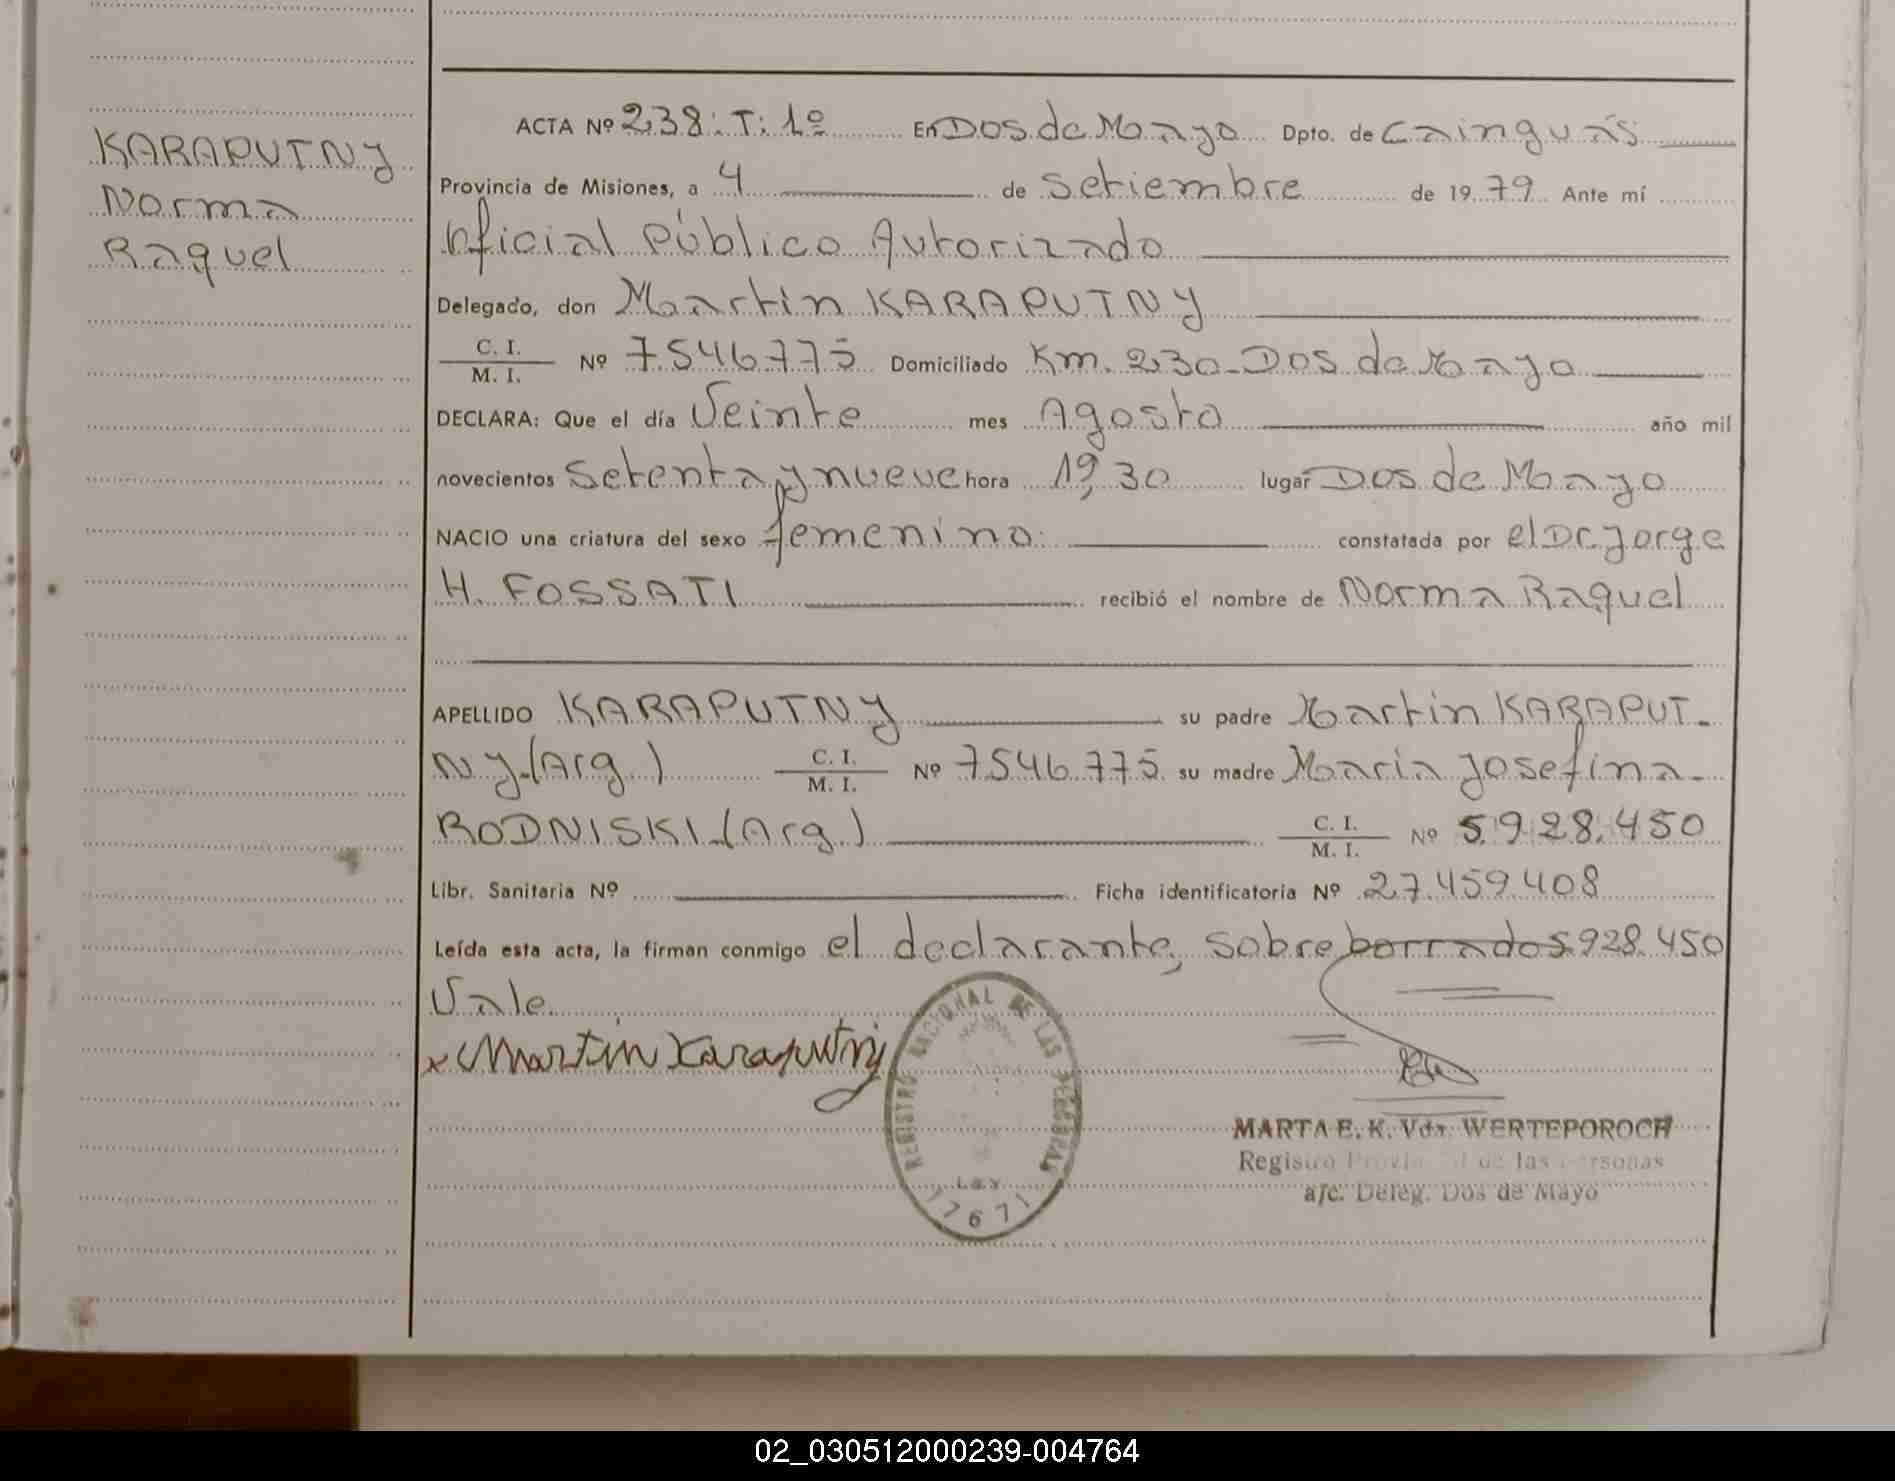 KARAPUTNY
Norma
Raquel
ACTA Nº 238: T: 1º En Dos de Mayo Dpto. de Cainguás
Provincia de Misiones, a 4 de Setiembre de 1979 Ante mí
Oficial Público Autorizado
Delegado, don Martin KARAPUTNY
C. I.
M. I. Nº 7546775 Domiciliado Km. 230-Dos de Mayo
DECLARA: Que el día Veinte mes Agosto año mil
novecientos Setenta y nueve hora 19,30 lugar Dos de Mayo
NACIO una criatura del sexo femenino: constatada por el Dr. Jorge
H. FOSSATI recibió el nombre de Norma Raquel
APELLIDO KARAPUTNY su padre Martin KARAPUT-
NY.(Arg.) C. I.
M. I. Nº 7546.775 su madre Maria Josefina-
RODNISKI-(Arg.) C. I.
M. I. Nº 5.928.450
Libr. Sanitaria Nº Ficha identificatoria Nº 27.459.408
Leída esta acta, la firman conmigo el declarante, sobre borrado 5928.450
Vale.
x Martin Karaputnij
REGISTRO NACIONAL DE LAS PERSONAS
Ley
17671
MARTA E. K. Vda. WERTEPOROCH
Registro Provincial de las Personas
a/c. Deleg. Dos de Mayo
02_030512000239-004764